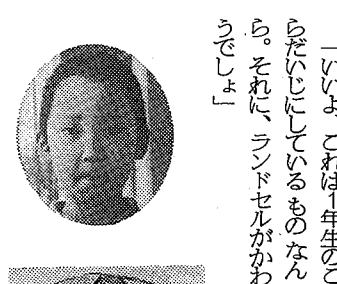 「いいよ。これは1年生のこ
らだいじにしているものなん
ら。それに、ランドセルがかわ
うでしょ」